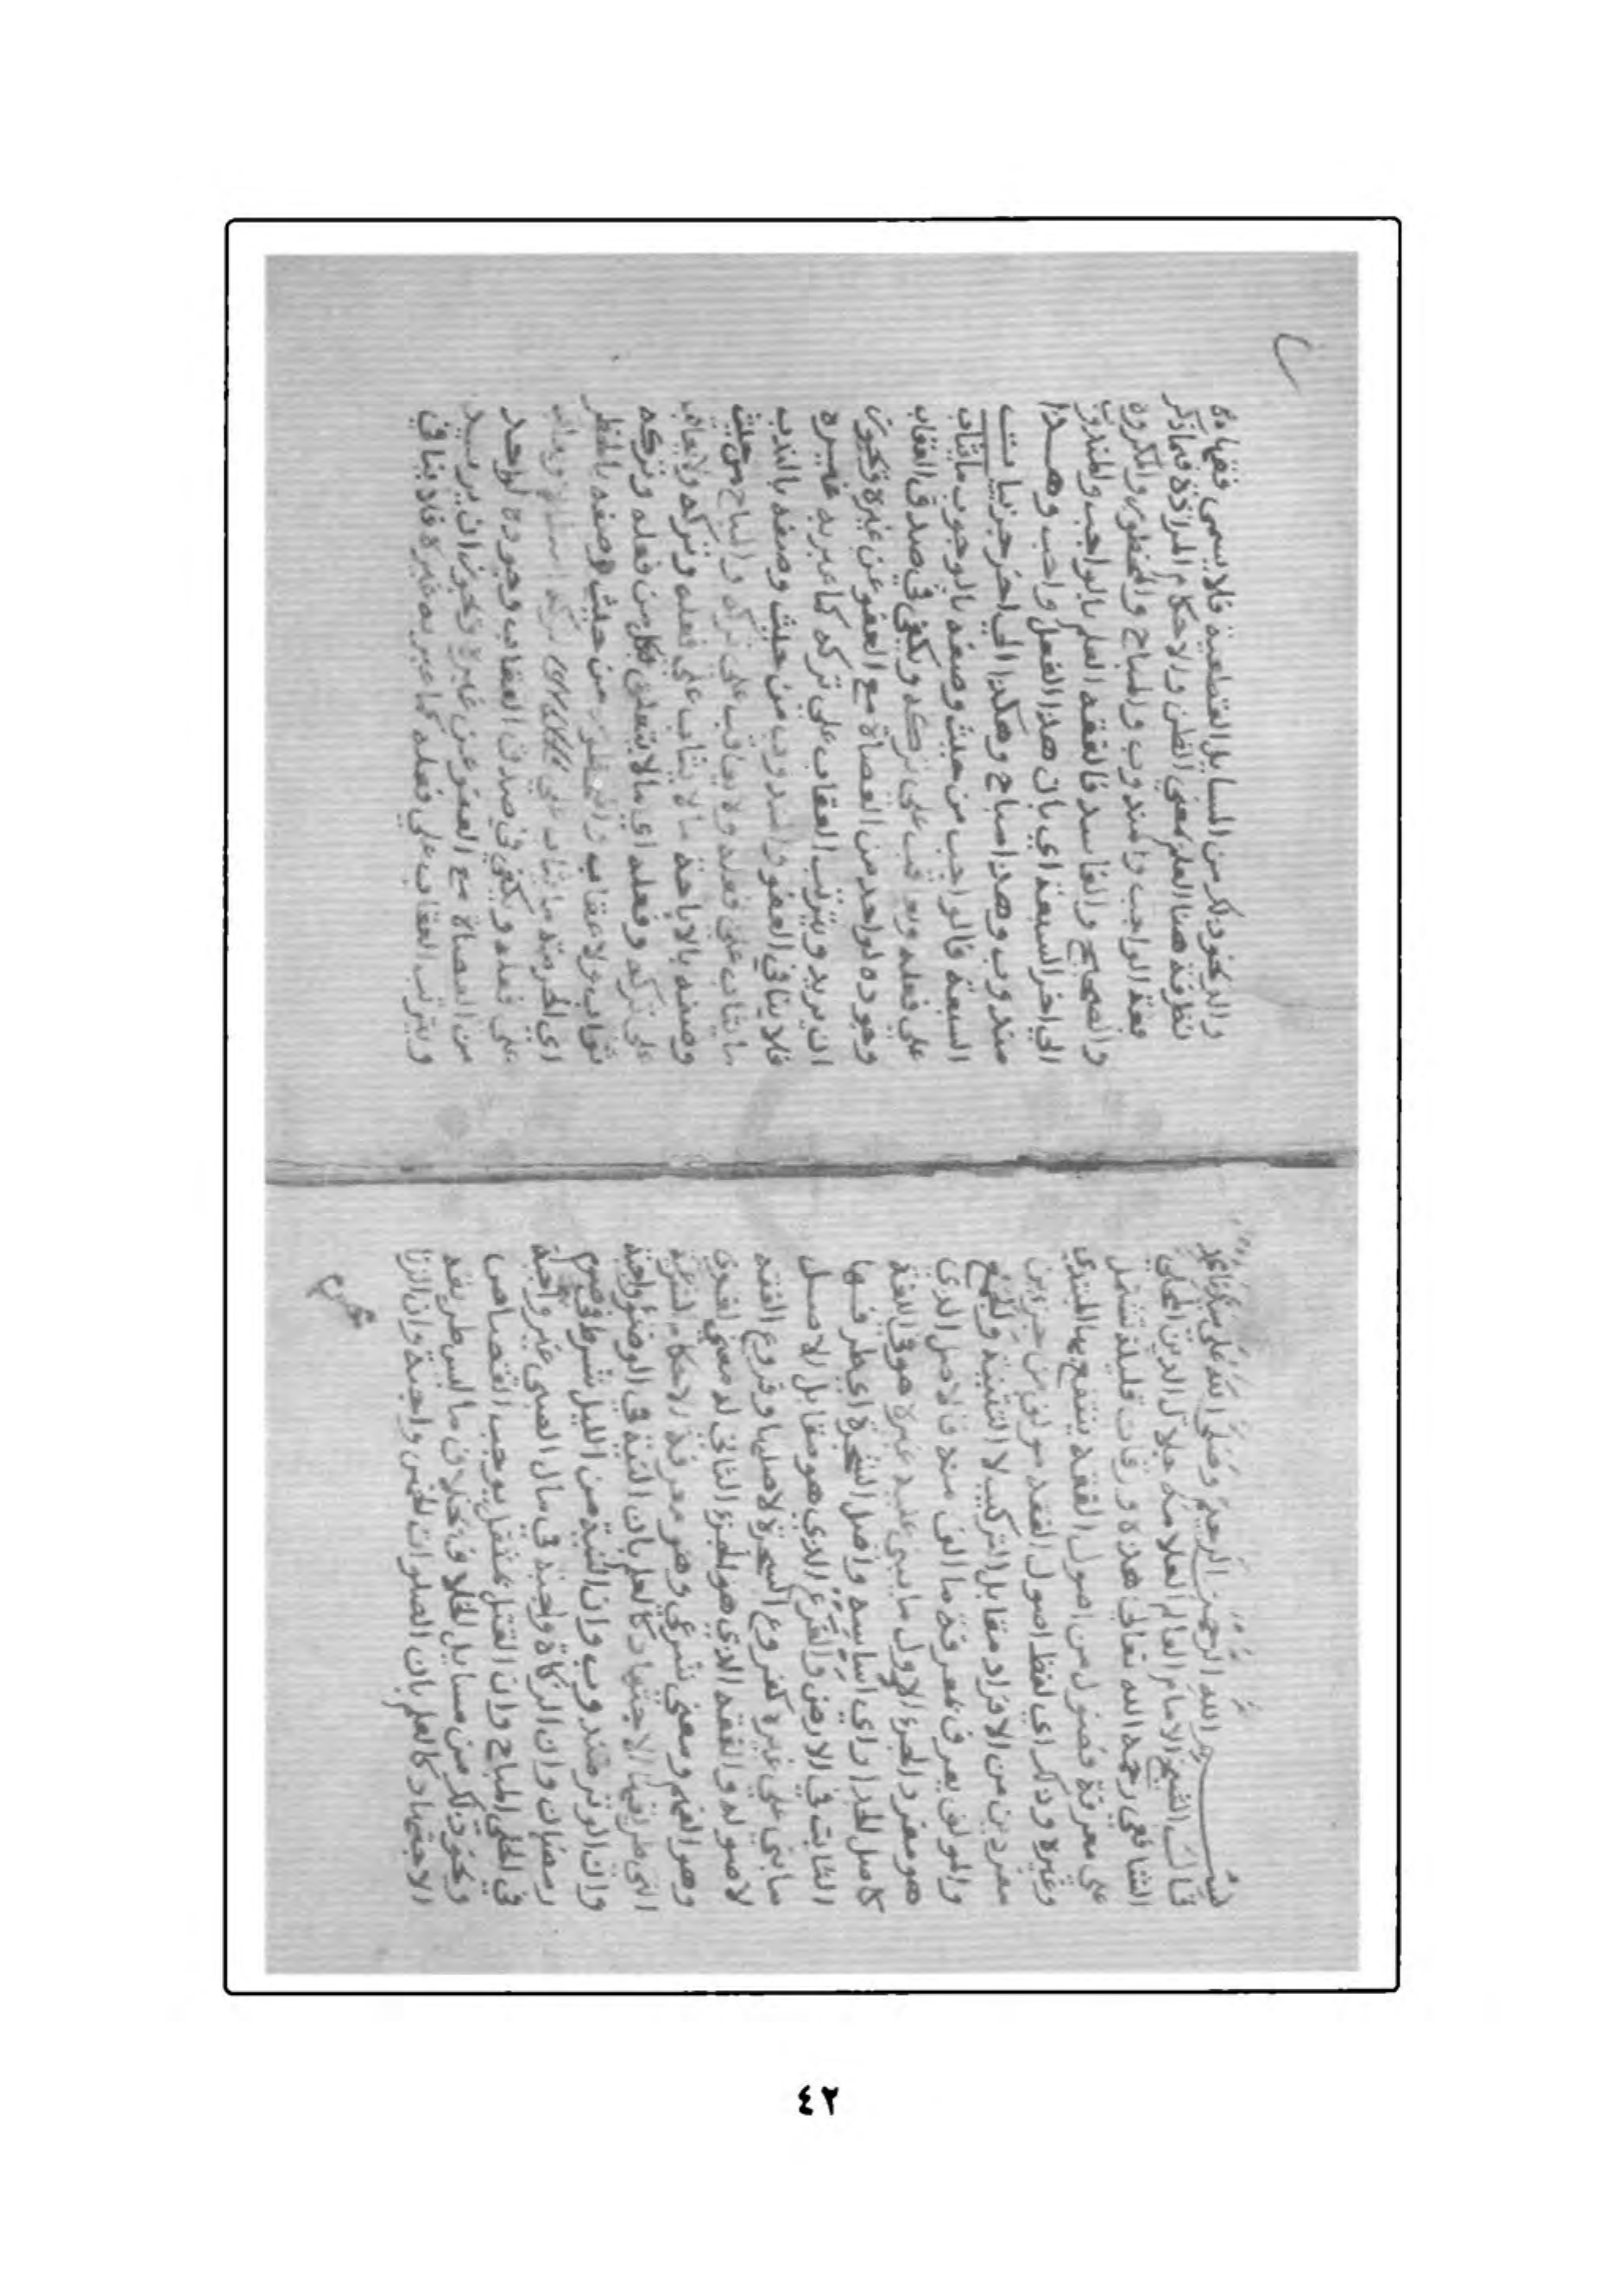 بسم الله الرحمن الرحيم وصلى الله على سيدنا محمد
قال الشيخ الامام العالم العلامة جلال الدين المحلي
الشافعي رحمه الله تعالى هذه ورقات قليلة تشتمل
على معرفة فصول من اصول الفقه ينتفع بها المبتدي
وغيره وذلك اي لفظ اصول الفقه مولف من جزوين
مفردين من الافراد مقابل التركيب لا التثنية والجمع
والمولف يعرف بمعرفة ما الف منه فالاصل الذى
هو مفرد الجزء الاول ما يبنى عليه غيره هو في اللغة
كاصل الجدار اي اساسه واصل الشجرة اي طرفها
الثابت في الارض والفرع الذي هو مقابل الاصل
ما يبنى على غيره كفروع الشجرة لاصلها وفروع الفقه
لاصوله والفقه الذي هو الجزء الثاني له معنى لغوي
وهو الفهم ومعنى شرعي وهو معرفة الاحكام الشرعية
التي طريقها الاجتهاد كالعلم بان النية في الوضوء واجبة
وان الوتر مندوب وان النية من الليل شرط في صوم
رمضان وان الزكاة واجبة في مال الصبي غير واجبة
في الحلى المباح وان القتل بمثقل يوجب القصاص
ونحو ذلك من مسايل الخلاف بخلاف ما ليس طريقه
الاجتهاد كالعلم بان الصلوات الخمس واجبة وان الزنا
محرم
٢
ونحو ذلك من المسايل القطعية فلا يسمى فقها
نظرفة هنا العلم بمعنى الظن والاحكام المرادة فيما ذكر
سبعة الواجب والمندوب والمباح والمحظور والمكروه
والصحيح والفاسد فالفقه العلم بالواجب والمندوب
الى اخر السبعة اي بان هذا الفعل واجب وهـذا
مندوب وهذا مباح وهكذا الى اخر جزييات
السبعة فالواجب من حيث وصفه بالوجوب ما يثاب
على فعله ويعاقب على تركه ويكفي في صدق العقاب
وجوده لواحد من العصاة مع العفو عن غيره ويجوز
ان يريد ويترتب العقاب على تركه كما عبر به غيـره
فلا ينافي العفو والمندوب من حيث وصفه بالندب
ما يثاب على فعله ولا يعاقب على تركه والمباح من حيث
وصفه بالاباحة ما لا يثاب على فعله وتركه ولا يعاقب
على تركه وفعله اي ما لا يتعلق بكل من فعله وتركه
ثواب ولا عقاب والمحظور من حيث وصفه بالحظر
اي الحرمة ما يثاب على تركه امتثالا ويعاقب
على فعله ويكفي في صدق العقاب وجوده لواحد
من العصاة مع العفو عن غيره ويجوز ان يريـد
ويترتب العقاب على فعله كما عبر به غيره فلا ينافي
٤٢